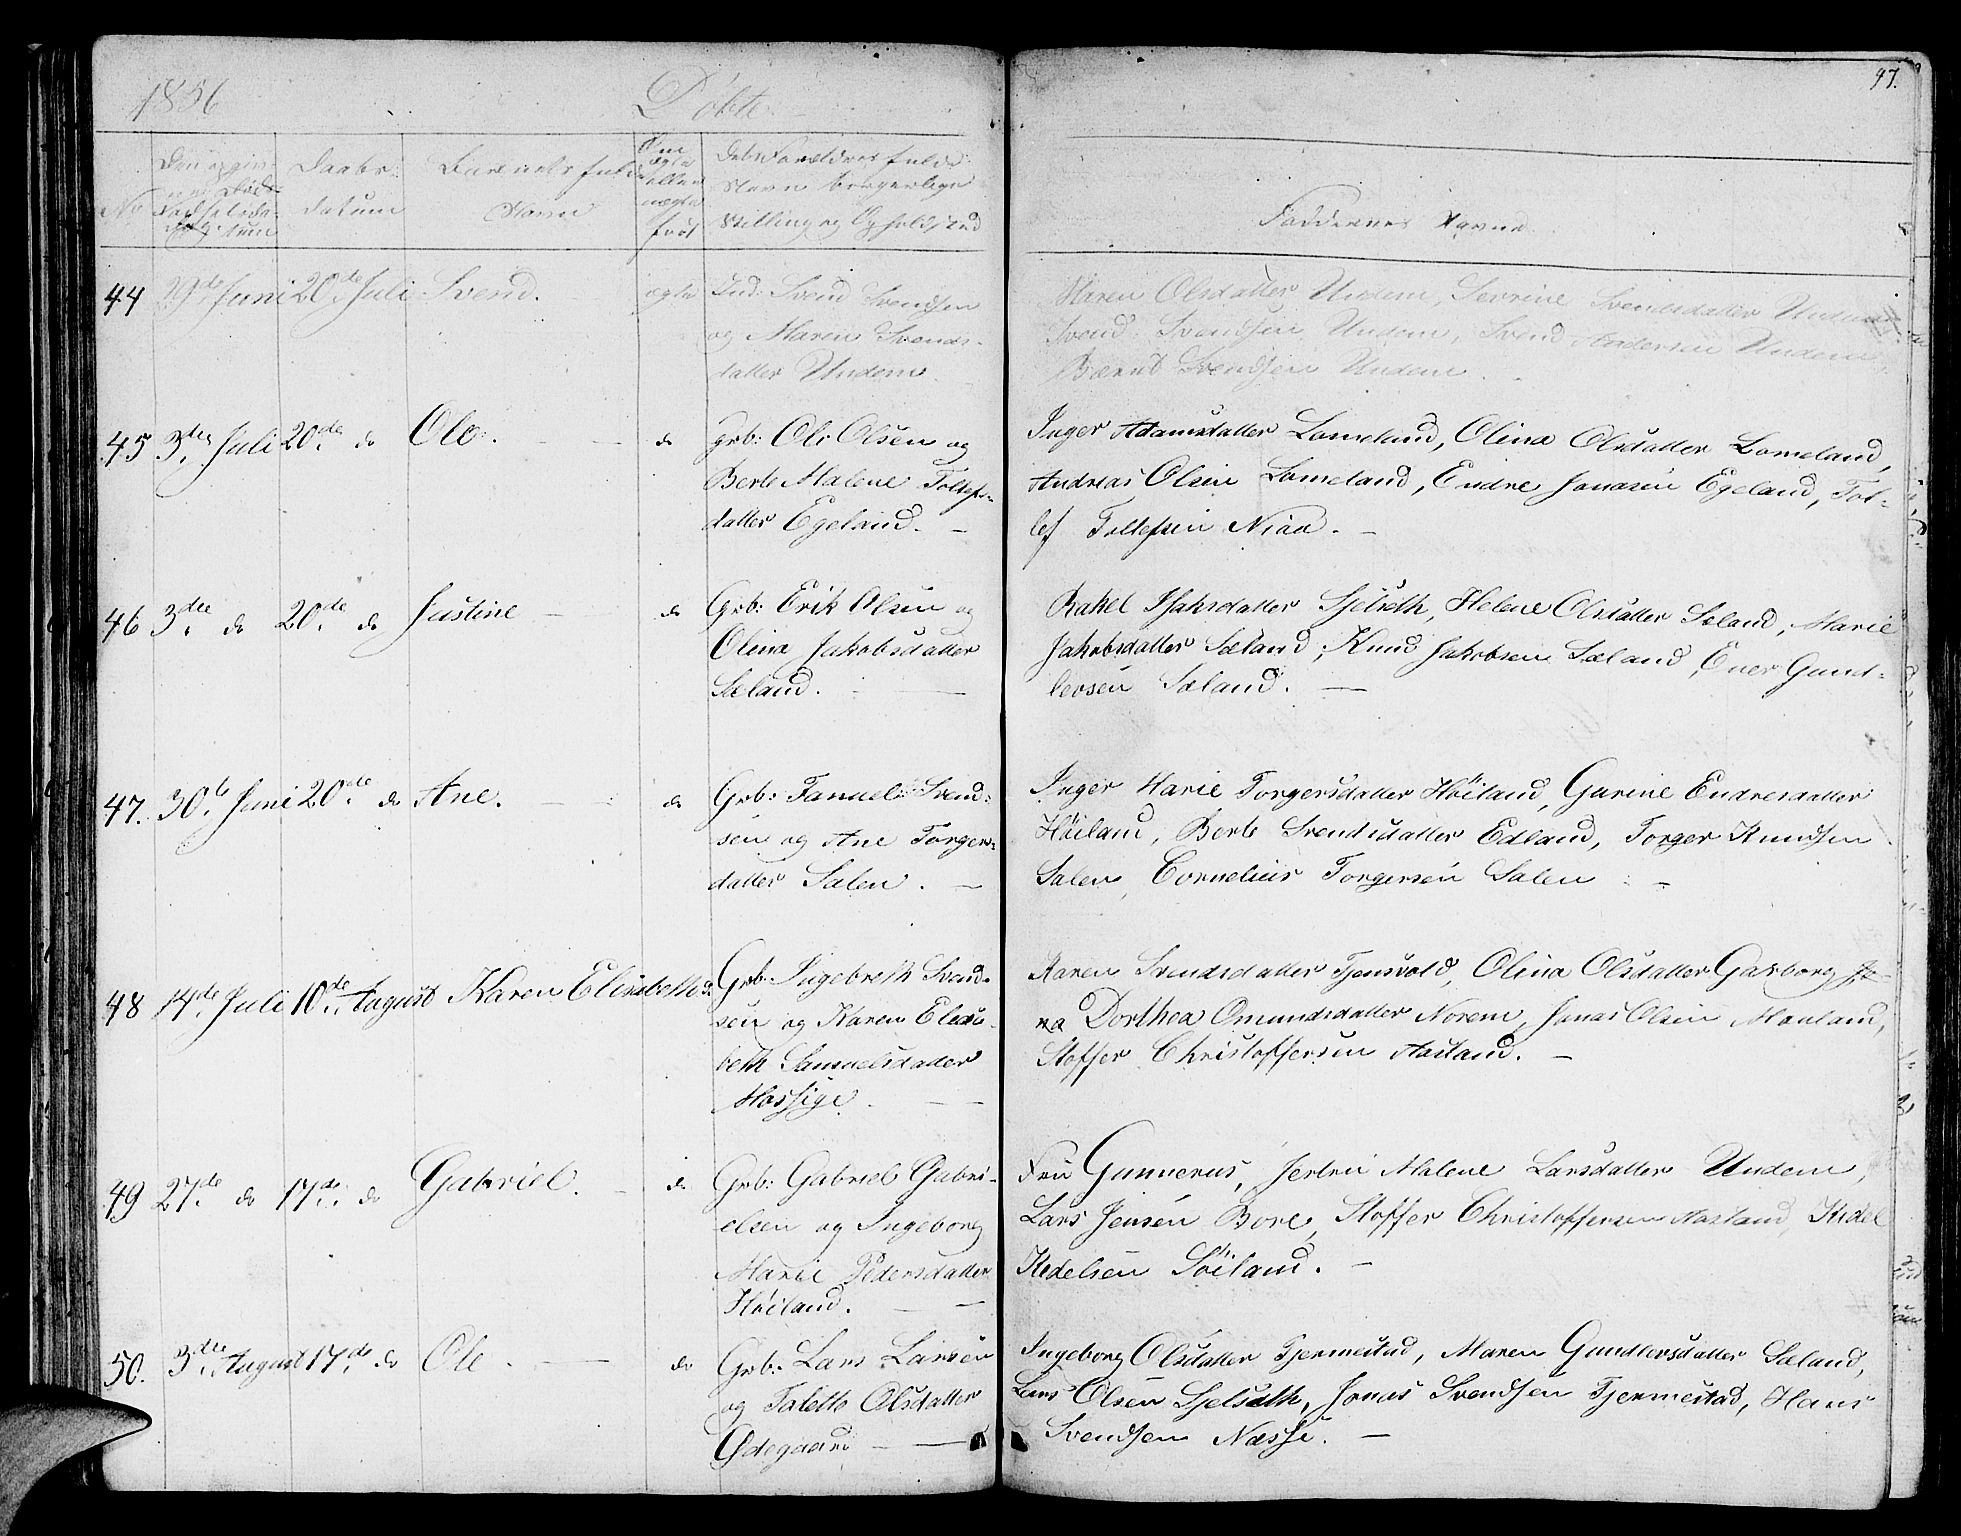 1856 Døbte
97.
No
Daabs-
datum
Barnets fulde
Navn
Om
ægte
eller
uægte
født
Forældres fulde
Navn borgerlige
Stilling og Opholdssted
Faddernes Navne
44 29de Juni 20de Juli Svend. ægte Svend Svendsen
og Maren Svends-
datter Undem
Maren Olsdatter Undem, Serine Svendsdatter Undem
Svend Svendsen Undem, Svend Andersen Undem
Svendsen Undem
45 3die Juli 20de do Ole. do grb: Ole Olsen og
Berte Malene Tollefs-
datter Egeland. —
Inger Adamsdatter Lomeland, Olina Olsdatter Lomeland,
Andreas Olsen Lomeland, Endre Jonasen Egeland, Tol-
lef Tollefsen Niaa. —
46 3die do 20de do Justine — do Grb: Erik Olsen og
Olina Jakobsdatter
Sæland. —
Rakel Isaksdatter Sjelseth, Helene Olsdatter Sæland, Marie
Jakobsdatter Sæland, Knud Jakobsen Sæland, Ener Gund-
lersen Sæland. —
47. 30te Juni 20de do Ane. do Grb: Samuel Svend-
sen og Ane Torgers-
datter Salen. —
Inger Marie Torgersdatter Höiland, Gurine Endresdatter
Höiland, Berte Svendsdatter Edland, Torger Knudsen
Salen, Cornelius Torgersen Salen —
48 14de Juli 10de August Karen Elisabeth do Grb: Ingebreth Svend-
sen og Karen Elisa-
beth Samuelsdatter
Mossige. —
Karen Svendsdatter Tjensvold, Olina Olsdatter Garborg, Jo-
na Dorthea Omundsdatter Norem, Jonas Olsen Mauland,
Stoffer Christoffersen Aasland. —
49 27de do 17de do Gabriel. — do Grb: Gabriel Gabri-
elsen og Ingeborg
Marie Pedersdatter
Höiland. —
Fru Gunnerus, Malene Larsdatter Undem,
Lars Jensen Bore, Stoffer Christoffersen Aasland, Kedel
Kedelsen Söiland. —
50. 3die August 17de do Ole. — do Grb: Lars Larsen
og Talette Olsdatter
Ødegaard —
Ingeborg Olsdatter Tjermestad, Maren Gundlersdatter Sæland,
Lars Olsen Sjelseth, Jonas Svendsen Tjermestad, Hans
Svendsen Næsse. —